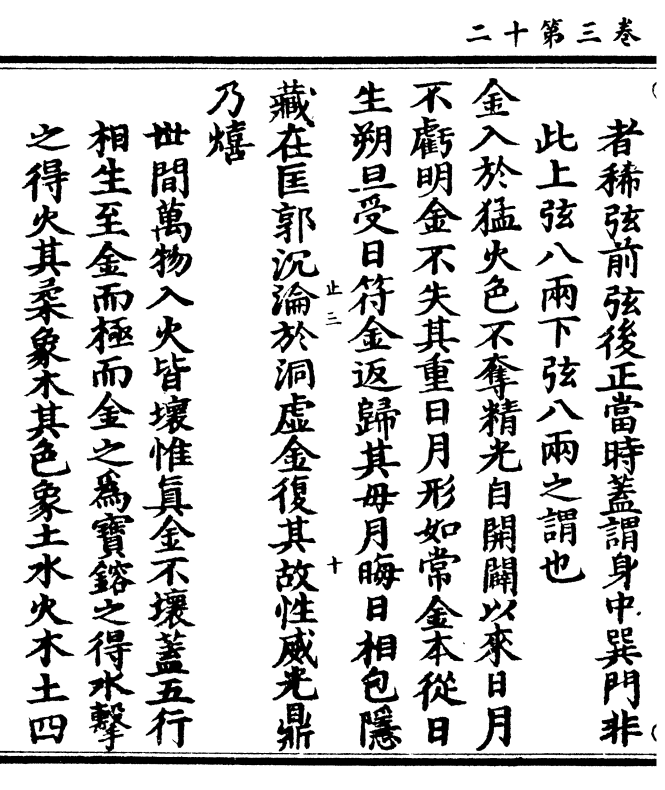 二十第三卷
者稀弦前弦後正當時蓋謂身中巽門非
此上弦八兩下弦八兩之謂也
金入於猛火色不奪精光自開闢以來日月
不虧明金不失其重日月形如常金本從日
生朔旦受日符金返歸其毋月晦日相包隱
藏在匡郭沉淪於洞虛金復其故性威光鼎
止三
十
乃熺
世間萬物入火皆壞惟眞金不壞蓋五行
相生至金而極而金之爲寶鎔之得水擊
之得火其柔象木其色象土水火木土四